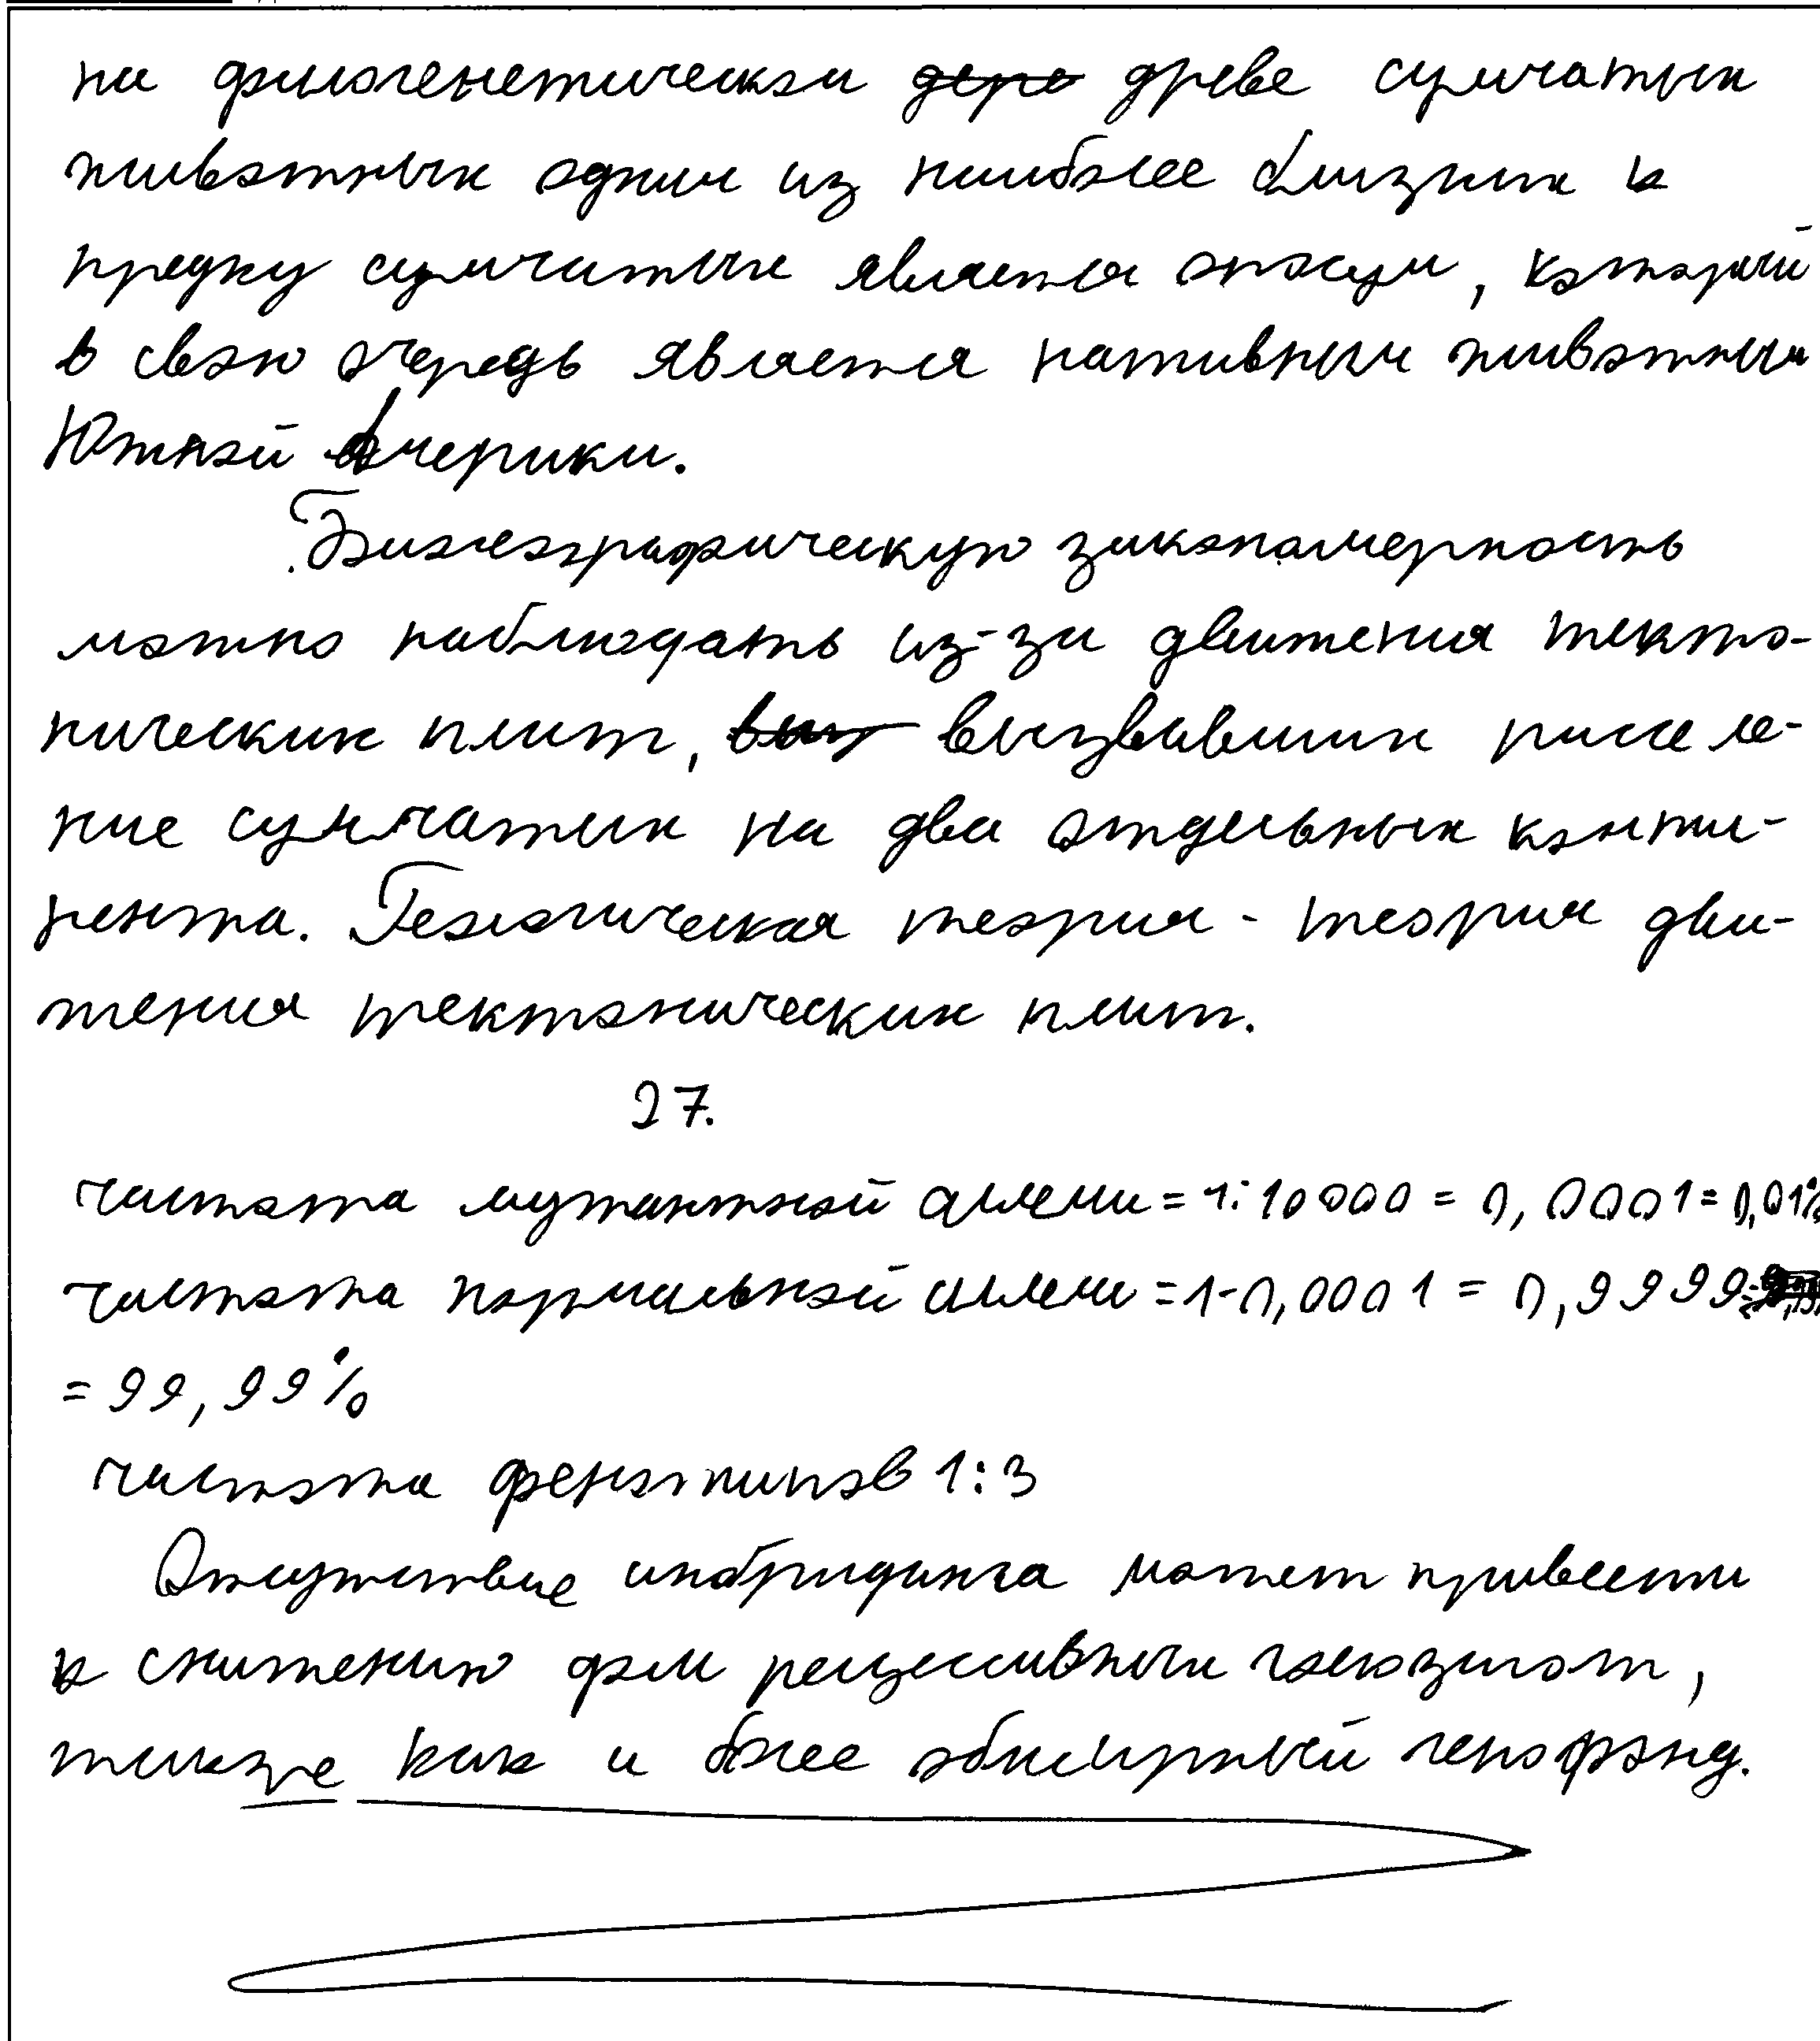 на филогенетическом дере древе сумчатых
животных одним из наиболее близких к
предку сумчатых является опоссум, который
в свою очередь является нативным животным
Южной Америки.
Биогеографическую закономерность
можно наблюдать из-за движения текто-
нических плит, выз вызвавших рассе ле-
ние сумчатых на два отдельных конти-
нента. Геологическая теория - теория дви-
жения тектонических плит.
27.
частота мутантной аллели = 1:10000 = 0,0001 = 0,01%
частота нормальной аллели = 1-0,0001 = 0,9999
= 99,99%
частота фенотипов 1:3
Отсутствие инбридинга может привести
к снижению рецессивных гомозигот,
также как и более обширный генофонд.